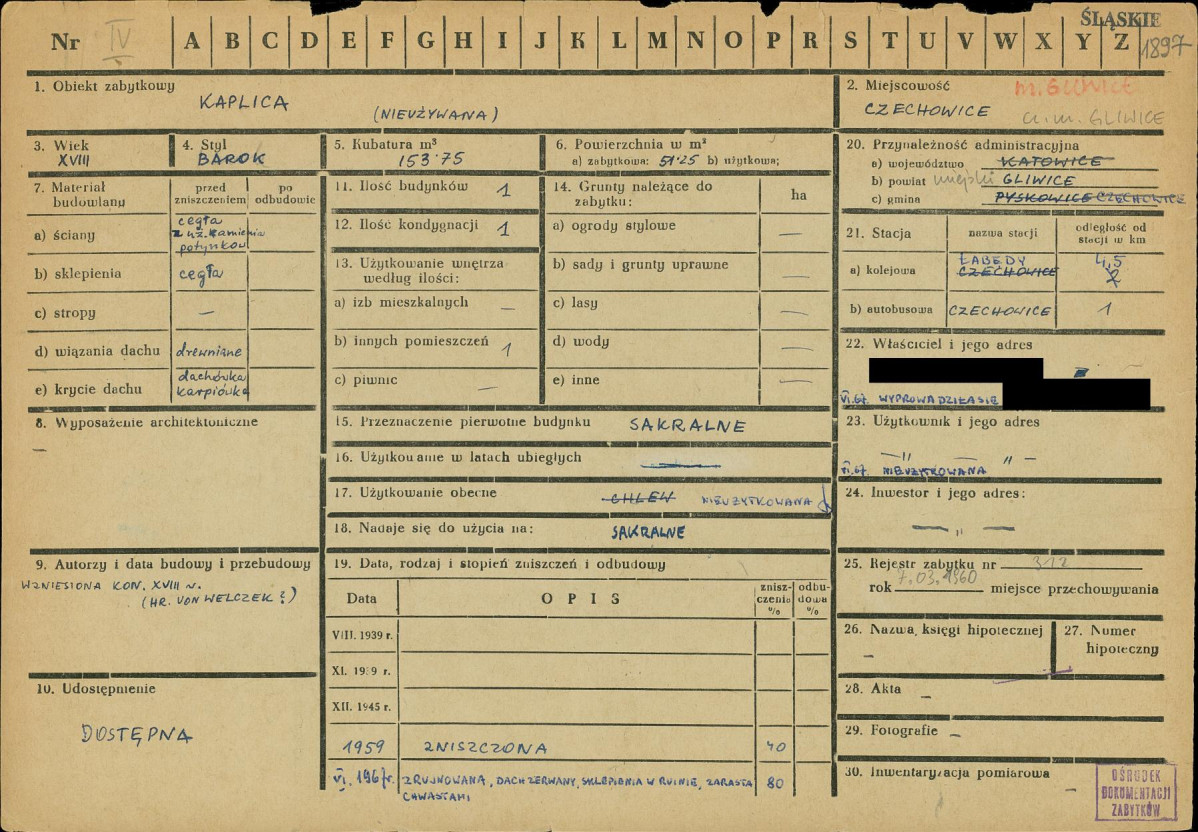 ŚLĄSKIE
Nr IV A B C D E F G H I J K L M N O P R S T U V W X Y Z 1897
1. Obiekt zabytkowy
KAPLICA
(NIEUŻYWANA)
2. Miejscowość m. GLIWICE
CZECHOWICE
n. m. GLIWICE
3. Wiek
XVIII
4. Styl
BAROK
5. Kubatura m³
153·75
6. Powierzchnia w m²
a) zabytkowa: 51·25 b) użytkowa;
20. Przynależność administracyjna
a) województwo KATOWICE
b) powiat miejski GLIWICE
c) gmina PYSKOWICE CZECHOWICE
7. Materiał budowlany
przed zniszczeniem
po odbudowie
a) ściany
cegła
z uż. kamienia
potynkow
b) sklepienia cegła
c) stropy —
d) wiązania dachu drewniane
e) krycie dachu
dachówka
karpiówka
11. Ilość budynków 1
12. Ilość kondygnacji 1
13. Użytkowanie wnętrza
według ilości:
a) izb mieszkalnych —
b) innych pomieszczeń 1
c) piwnic —
14. Grunty należące do
zabytku:
ha
a) ogrody stylowe —
b) sady i grunty uprawne —
c) lasy —
d) wody —
e) inne —
21. Stacja
nazwa stacji
odległość od
stacji w km
a) kolejowa
ŁABĘDY 4,5
CZECHOWICE 2
b) autobusowa CZECHOWICE 1
22. Właściciel i jego adres
VI.67. WYPROWADZIŁA SIĘ
8. Wyposażenie architektoniczne
—
15. Przeznaczenie pierwotne budynku SAKRALNE
16. Użytkowanie w latach ubiegłych
17. Użytkowanie obecne CHLEW NIEUŻYTKOWANA
18. Nadaje się do użycia na: SAKRALNE
23. Użytkownik i jego adres
— „ — „ —
VI.67. NIEUŻYTKOWANA
24. Inwestor i jego adres:
— „ —
9. Autorzy i data budowy i przebudowy
WZNIESIONA KON. XVIII w.
(HR. VON WELCZEK?)
19. Data, rodzaj i stopień zniszczeń i odbudowy
Data
OPIS
znisz-
czenia
%
odbu-
dowa
%
VIII. 1939 r.
XI. 1939 r.
XII. 1945 r.
1959 ZNISZCZONA 40
VI. 1967r. ZRUJNOWANA, DACH ZERWANY, SKLEPIENIA W RUINIE, ZARASTA 80
CHWASTAMI
25. Rejestr zabytku nr 312
rok 7.03.1960 miejsce przechowywania
26. Nazwa księgi hipotecznej
—
27. Numer
hipoteczny
10. Udostępnienie
DOSTĘPNA
28. Akta —
29. Fotografie —
30. Inwentaryzacja pomiarowa
—
OŚRODEK
DOKUMENTACJI
ZABYTKÓW